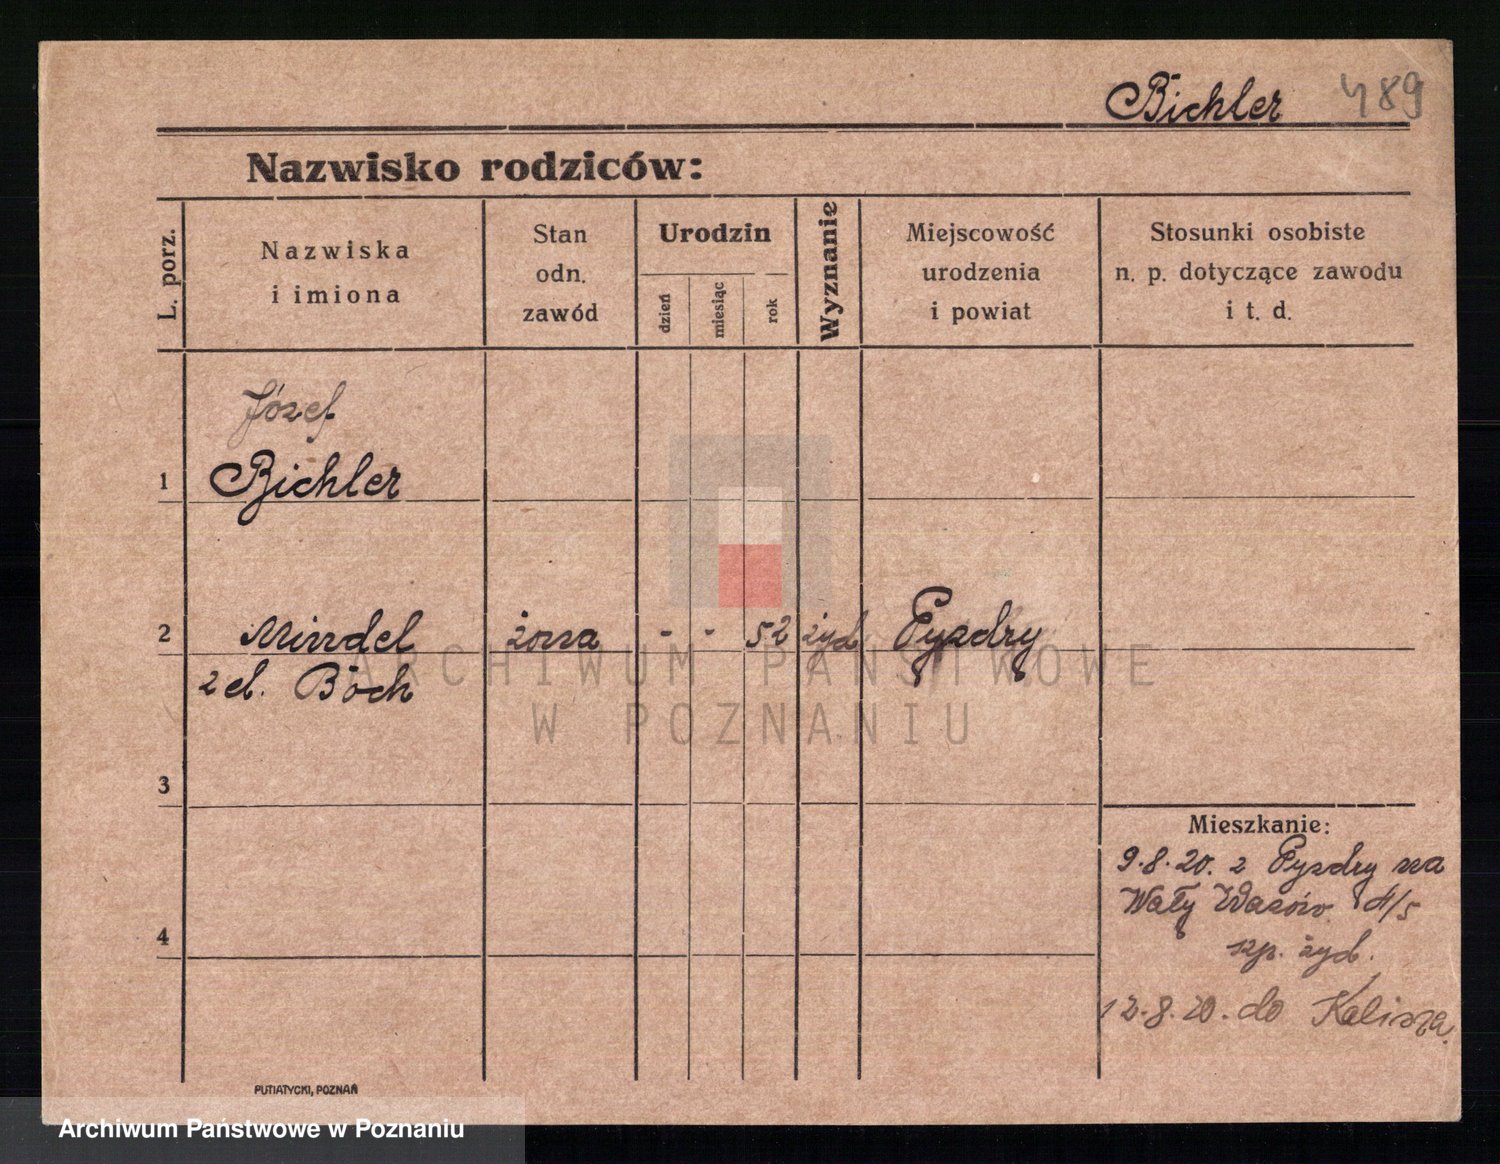 Bichler 489
Nazwisko rodziców:
L. porz.
Nazwiska
i imiona
Stan
odn.
zawód
Urodzin
dzień
miesiąc
rok
Wyznanie
Miejscowość
urodzenia
i powiat
Stosunki osobiste
n. p. dotyczące zawodu
i t. d.
Józef
1 Bichler
2 Mindel żona - - 52 żyd Pyzdry
z d. Böch
ARCHIWUM PAŃSTWOWE
W POZNANIU
3
Mieszkanie:
9.8.20. z Pyzdry na
Wały Wazów 4/5
szp. żyd.
4
12.8.20. do Kalisza.
PUTIATYCKI, POZNAŃ
Archiwum Państwowe w Poznaniu